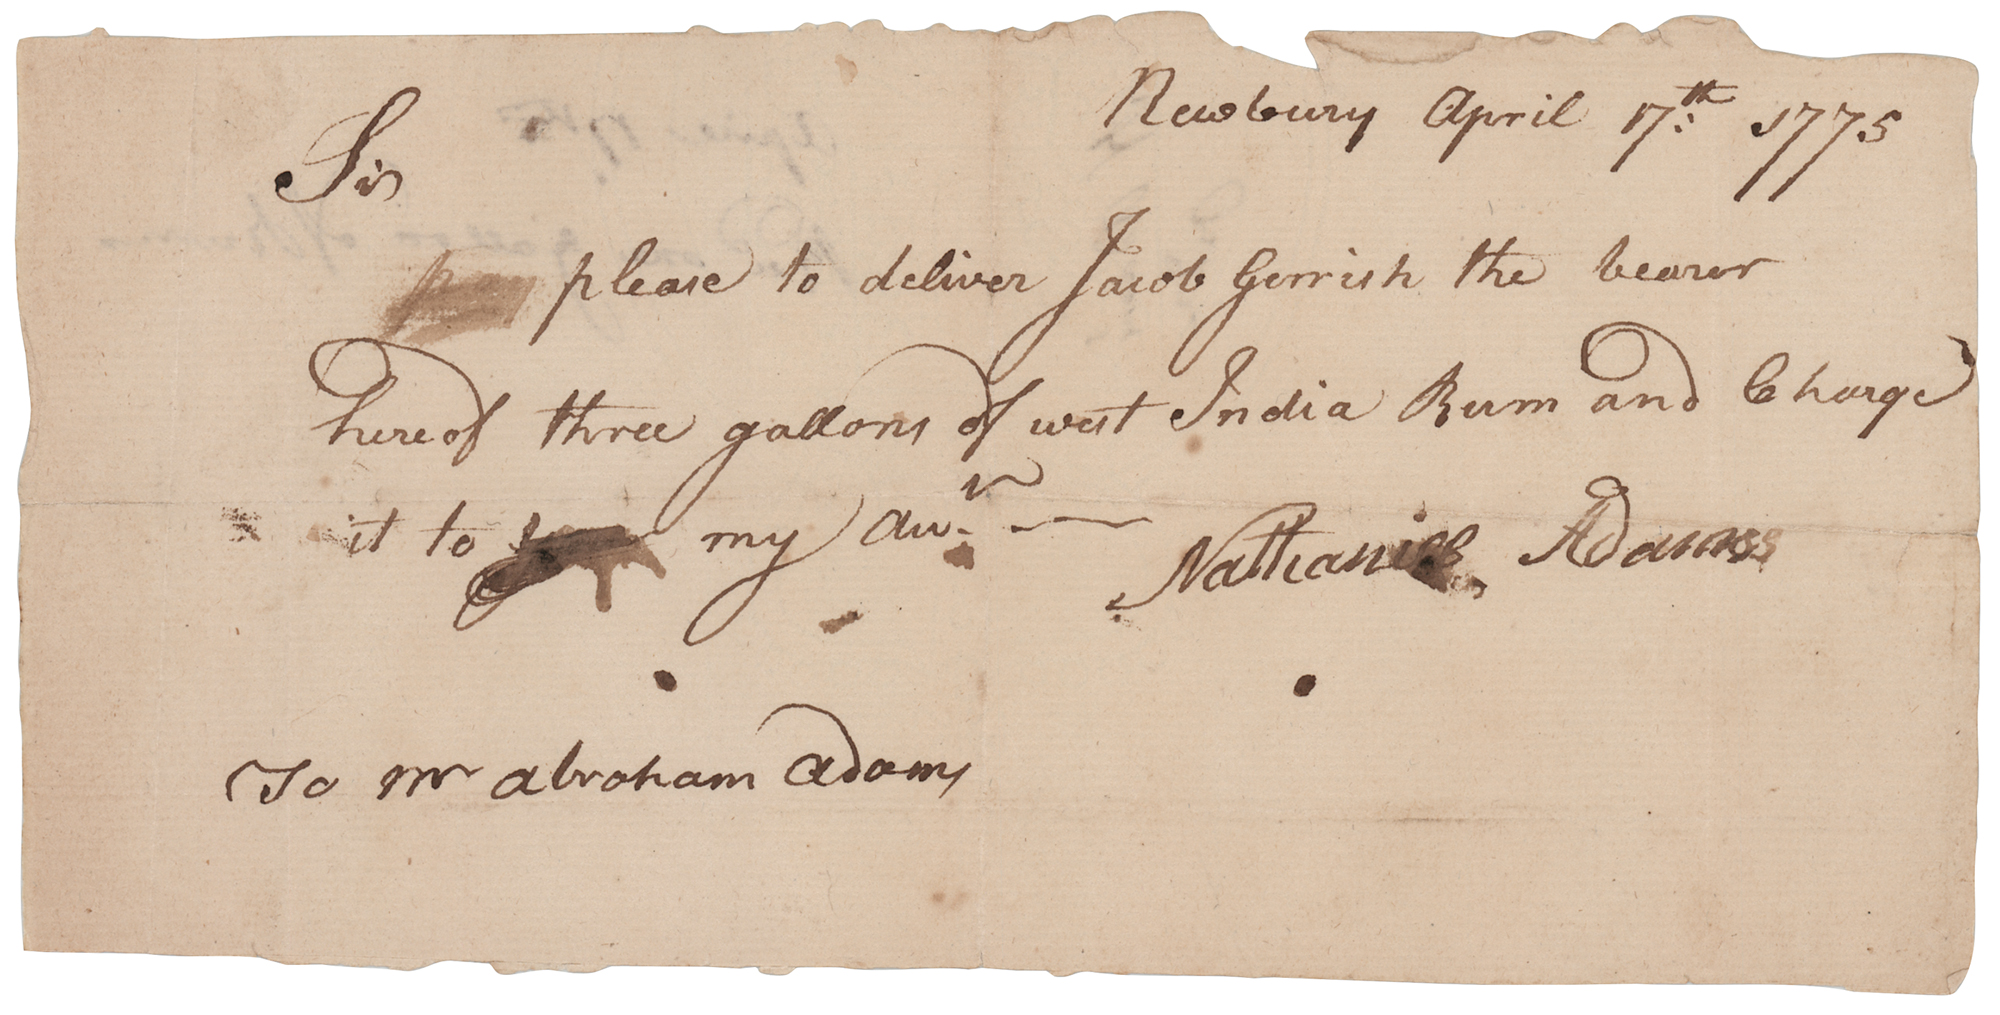 Newbury April 17th: 1775
Sir
please to deliver Jacob Gerrish the bearer
hereof three gallons of west India Rum and Charge
it to my
Nathaniel Adams
To Mr abraham Adams